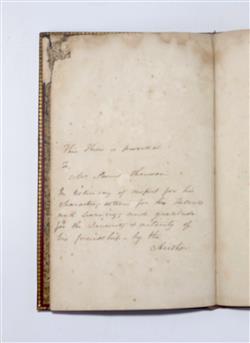 This [?] is presented
To
Mr. [?] Thomson
In testimony of respect for his
character, esteem for his talents
and learning, and gratitude
for the sincerity & [?] of
his friendship – by the
Author